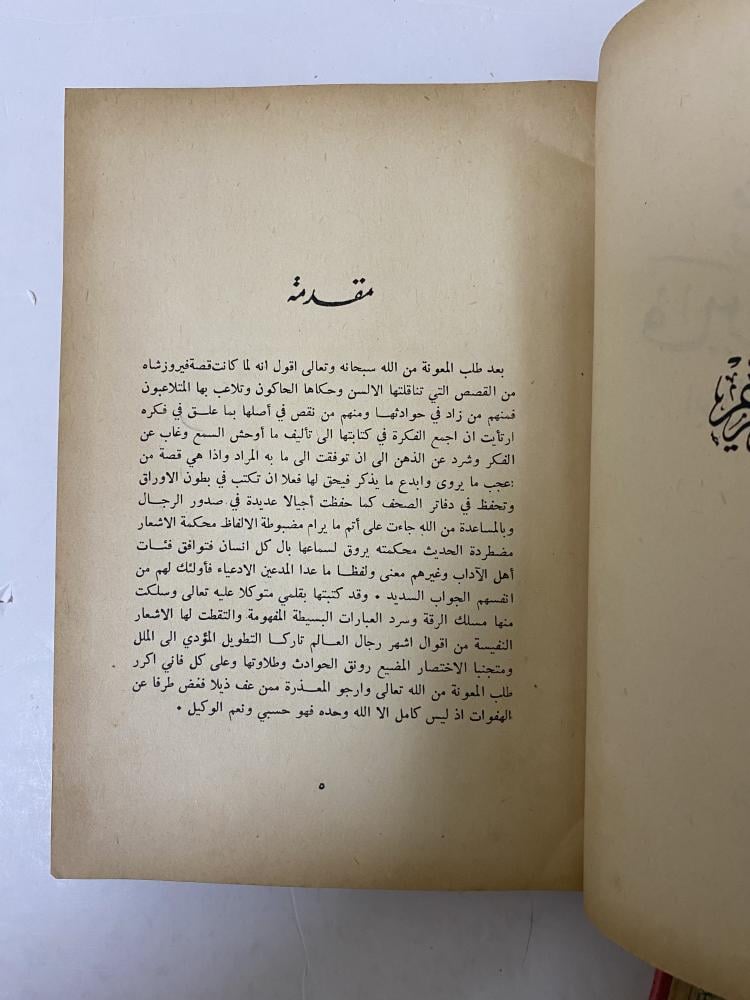 مقدمة
بعد طلب المعونة من الله سبحانه وتعالى اقول انه لما كانت قصة فيروزشاه
من القصص التي تناقلتها الالسن وحكاها الحاكون وتلاعب بها المتلاعبون
فمنهم من زاد في حوادثها ومنهم من نقص في أصلها بما علق في فكره
ارتأيت ان اجمع الفكرة في كتابتها الى تأليف ما أوحش السمع وغاب عن
الفكر وشرد عن الذهن الى ان توفقت الى ما به المراد واذا هي قصة من
عجب ما يروى وابدع ما يذكر فيحق لها فعلا ان تكتب في بطون الاوراق
وتحفظ في دفاتر الصحف كما حفظت أجيالا عديدة في صدور الرجال
وبالمساعدة من الله جاءت على أتم ما يرام مضبوطة الالفاظ محكمة الاشعار
مضطردة الحديث محكمته يروق لسماعها بال كل انسان فتوافق فئات
أهل الآداب وغيرهم معنى ولفظا ما عدا المدعين الادعياء فأولئك لهم من
انفسهم الجواب السديد • وقد كتبتها بقلمي متوكلا عليه تعالى وسلكت
منها مسلك الرقة وسرد العبارات البسيطة المفهومة والتقطت لها الاشعار
النفيسة من اقوال اشهر رجال العالم تاركا التطويل المؤدي الى الملل
ومتجنبا الاختصار المضيع رونق الحوادث وطلاوتها وعلى كل فاني اكرر
طلب المعونة من الله تعالى وارجو المعذرة ممن عف ذيلا فغض طرفا عن
الهفوات اذ ليس كامل الا الله وحده فهو حسبي ونعم الوكيل •
٥